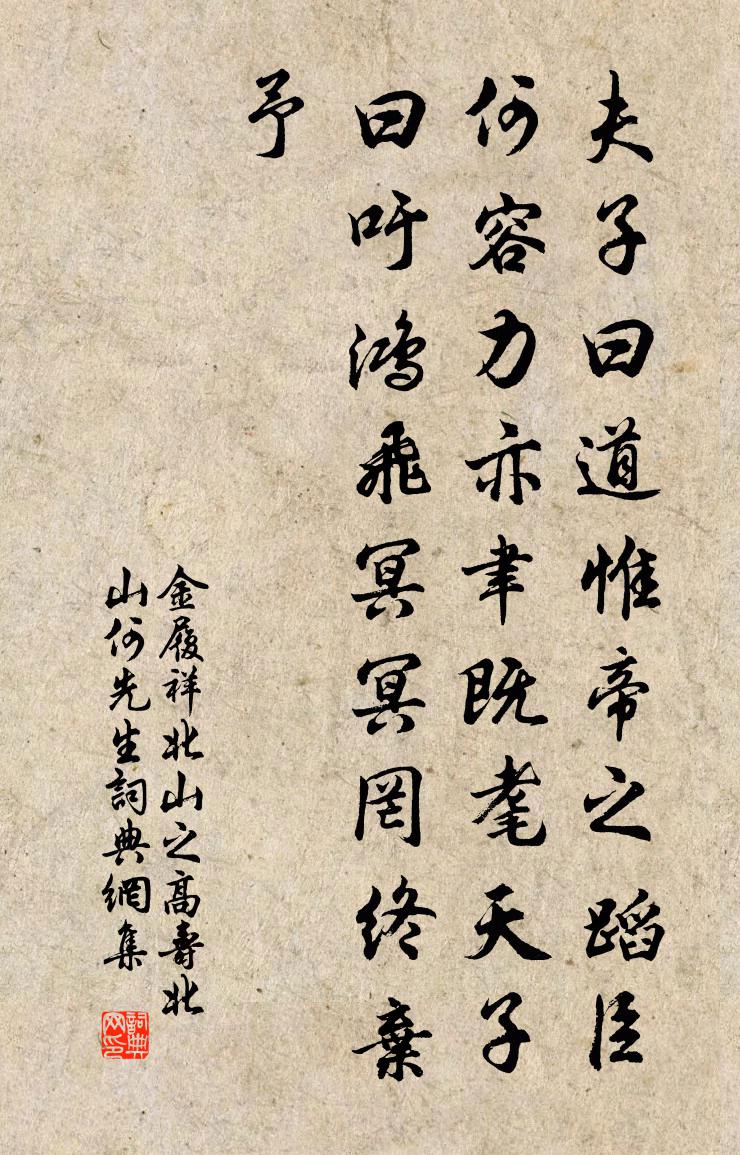 夫子曰道惟帝之蹈臣
何容力亦聿既耄天子
曰吁鸿飛冥冥罔终棄
予
金履祥北山之高壽北
山何先生詞典網集
詞典
网印